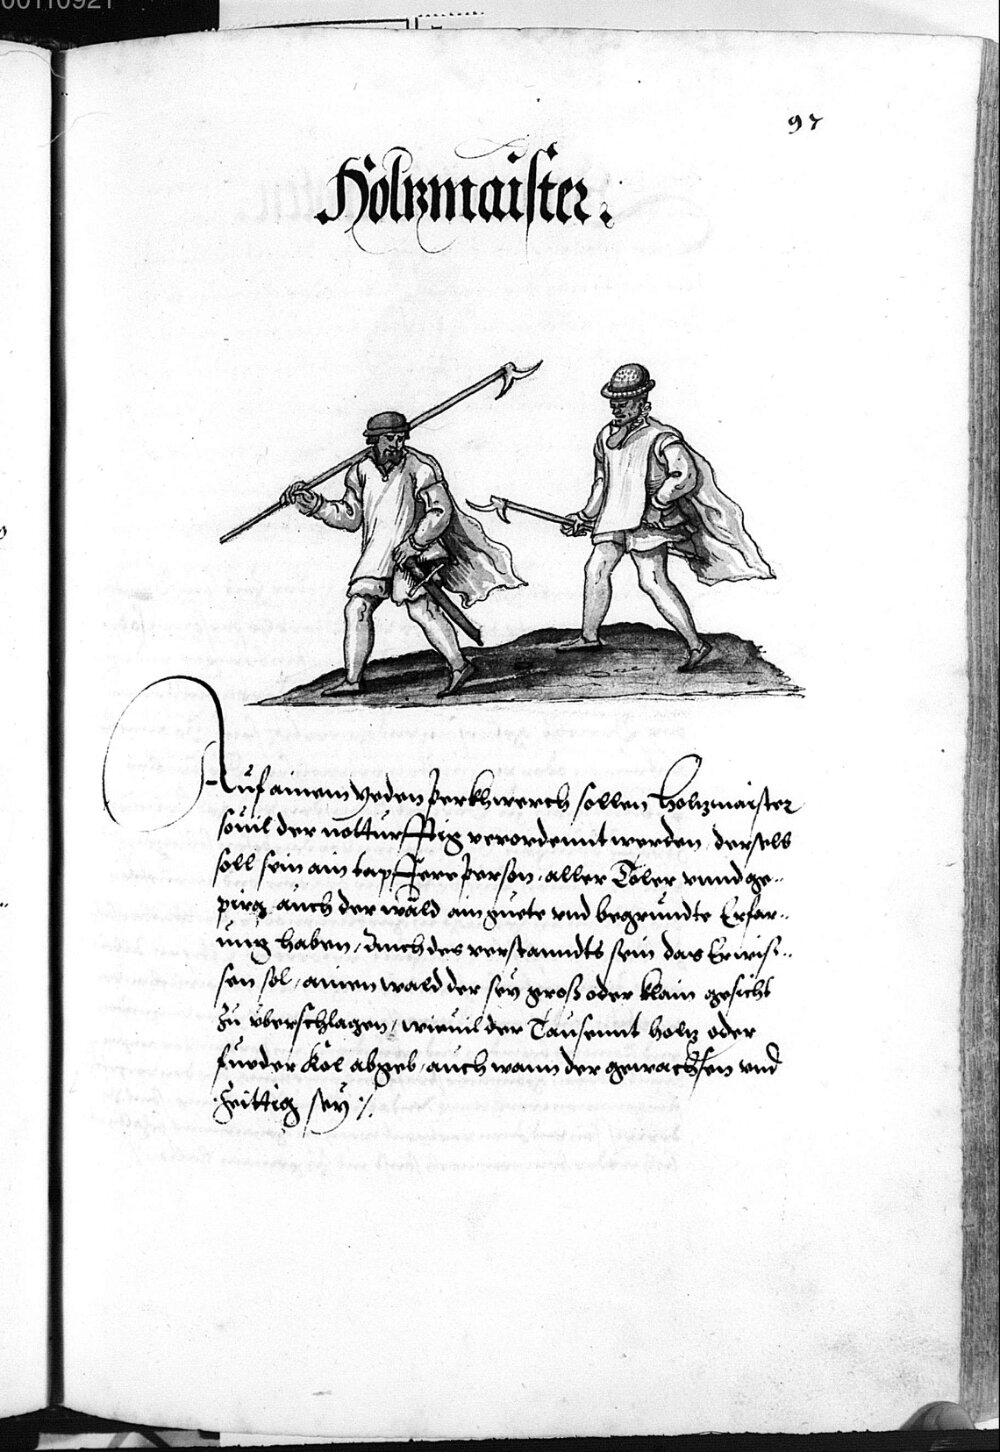 00110921
97
Holtzmaister.
Auf ainem yeden Perkhwerch sollen Holtzmaister
souil der notturfftig verordennt werden, derselb
soll sein ain tapffere Person, aller Täler vnnd ge-
pirg auch der wäld ain guete vnd begründte Erfar-
ung haben, Auch des verstanndts sein das Er wis-
sen sol, ainen wald der sey groß oder klain gesicht
zu vberschlagen, wieuil der Tausennt holtz oder
fueder Kol abgeb, auch wann der gewachsen vnd
Zeittig sey ./.